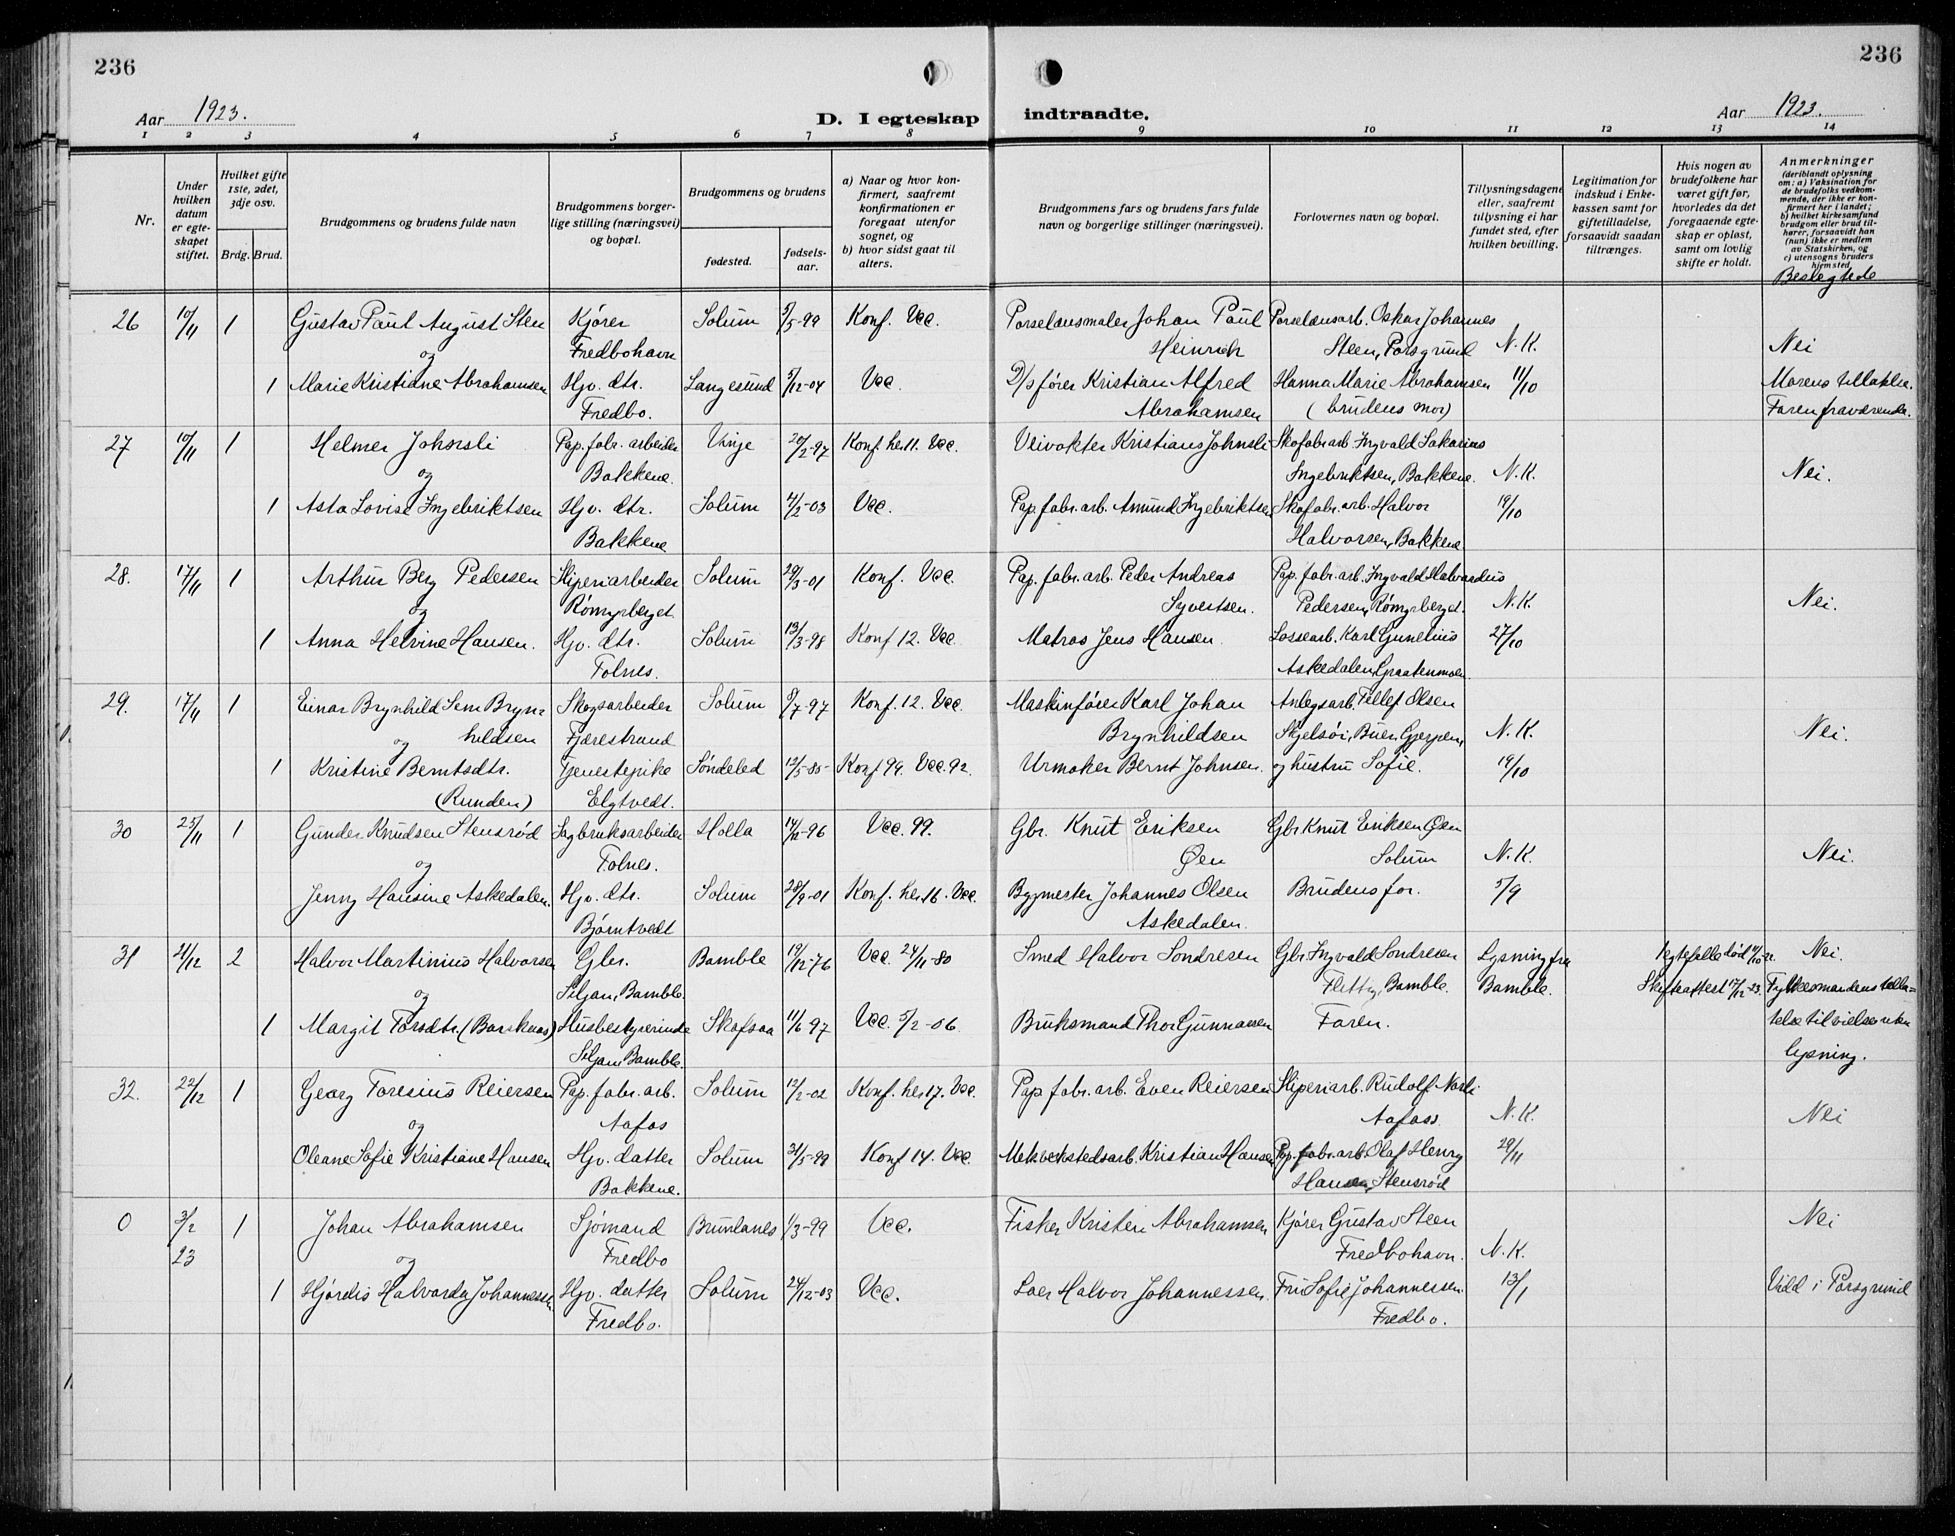 236
236
Aar 1923.
D. I egteskap
indtraadte.
Aar 1923.
1 2 3 4 5 6 7 8 9 10 11 12 13 14
Nr.
Under hvilken datum er egteskapet stiftet.
Hvilket gifte 1ste, 2det, 3dje osv.
Brdg. Brud.
Brudgommens og brudens fulde navn
Brudgommens borgerlige stilling (næringsvei) og bopæl.
Brudgommens og brudens
fødested.
fødselsaar.
a) Naar og hvor konfirmert, saafremt konfirmationen er foregaat utenfor sognet, og
b) hvor sidst gaat til alters.
Brudgommens fars og brudens fars fulde navn og borgerlige stillinger (næringsvei).
Forlovernes navn og bopæl.
Tillysningsdagene eller, saafremt tillysning ei har fundet sted, efter hvilken bevilling.
Legitimation for indskud i Enkekassen samt for giftetilladelse, forsaavidt saadan tiltrænges.
Hvis nogen av brudefolkene har været gift før, hvorledes da det foregaaende egteskap er opløst, samt om lovlig skifte er holdt.
Anmerkninger
(deriblandt oplysning om: a) Vaksination for de brudefolks vedkommende, der ikke er konfirmert her i landet; b) hvilket kirkesamfund brudgom eller brud tilhører, forsaavidt han (hun) ikke er medlem av Statskirken, og c) utensogns bruders hjemsted.
Beslegtede
26 10/11 1 Gustav Paul August Sten Kjører Solum 5/5-99 Konf. Vcc. Porselænsmaler Johan Paul Porselænsarb. Oskar Johannes
Fredbohavn Heinrich Steen, Porsgrund N. K. Nei
og
1 Marie Kristiane Abrahamsen Hjv. dtr. Langesund 5/12-04 Vcc. D/S fører Kristian Alfred Hanna Marie Abrahamsen 11/10 Morens tillatelse.
Fredbo. Abrahamsen (brudens mor) Faren fraværende.
27 10/11 1 Helmer Johnsli Pap. fabr. arbeider Vinje 20/2-97 Konf. her 11. Vcc. Veivokter Kristians Johnsli Skofabr. arb. Ingvald Sakarius
og Bakkene. Ingebriktsen, Bakkene. N. K. Nei.
1 Asta Lovise Ingebriktsen Hjv. dtr. Solum 4/2-03 Vcc. Pap fabr. arb. Amund Ingebriktsen Skofabr. arb. Halvor 19/10
Bakkene Halvorsen, Bakkene
28. 17/11 1 Arthur Berg Pedersen Sliperiarbeider Solum 29/3-01 Konf. Vcc. Pap. fabr. arb. Peder Andreas Pap. fabr. arb. Ingvald Halvardius
og Rømyrberget Syvertsen. Pedersen, Rømyrberget. N. K. Nei.
1 Anna Helvine Hansen. Hjv. dtr. Solum 13/3-98 Konf 12. Vcc. Matros Jens Hansen. Lossearb. Karl Gunelius 27/10
Tolnes. Askedalen, Graatenmoen.
29. 17/11 1 Einar Brynhild Sem Bryn= Skogsarbeider Solum 5/7-97 Konf. 12. Vcc. Maskinfører Karl Johan Anlegsarb. Tellef Olsen
hildsen Fjærestrand Brynhildsen Skjelsøi, Buer, Gjerpen, N. K. Nei.
og
1 Kristine Berntsdtr. Tjenestepike Søndeled 12/5-85 Konf 99. Vcc. 92. Urmaker Bernt Johnsen. og hustru Sofie. 19/10
(Runden) Elgtvedt.
30 25/11 1 Gunder Knudsen Stensrød Sagbruksarbeider Holla 14/12-96 Vcc. 99. Gbr. Knut Eriksen Gbr Knut Eriksen Øen
og Tolnes. Øen Solum N. K. Nei.
Jenny Hansine Askedalen. Hjv. dtr. Solum 28/9-01 Konf. her 16. Vcc. Bygmester Johannes Olsen Brudens far. 5/9
Bjørntvedt Askedalen.
31 21/12 2 Halvor Martinius Halvorsen Gbr. Bamble 19/12-76 Vcc. 24/11-80 Smed Halvor Sondresen Gbr. Ingvald Sondresen Lysning fra 1 egtefælle død 4/10 22. Nei.
og Siljan, Bamble. Bamble. Bamble. Skifteattest 17/12-23. Fylkesmandens tilla=
1 Margit Torsdtr. Husbestyrerinde Skafsaa 11/6 97 Vcc. 5/2-06. Bruksmand Thor Gunnarsen Faren. telse til vielse uten
Siljan Bamble. lysning.
32. 22/12 1 Georg Toresius Reiersen Pap. fabr. arb. Solum 12/2-02 Konf. her 17. Vcc. Pap fabr. arb. Even Reiersen Sliperiarb. Rudolf Narli
og Aafos Aafoss N. K. Nei
Oleane Sofie Kristiane Hansen Hjv. datter Solum 31/5-99 Konf 14. Vcc. Mek verkstedsarb. Kristian Hansen Pap. fabr. arb. Olaf Henry 29/11
Bakkene. Hansen, Stensrød
0 3/2 1 Johan Abrahamsen Sjømand Brunlanes 1/3-99 Vcc. Fisker Kristen Abrahamsen Kjører Gustav Steen Nei
23 og Fredbo Fredbohavn. N. K.
1 Hjørdis Halvarda Johannessen Hjv. datter Solum 24/12-03 Vcc. Loer Halvor Johannessen. Fru Sofie Johannersen. 13/1 Viid i Porsgrund
Fredbo. Fredbo.